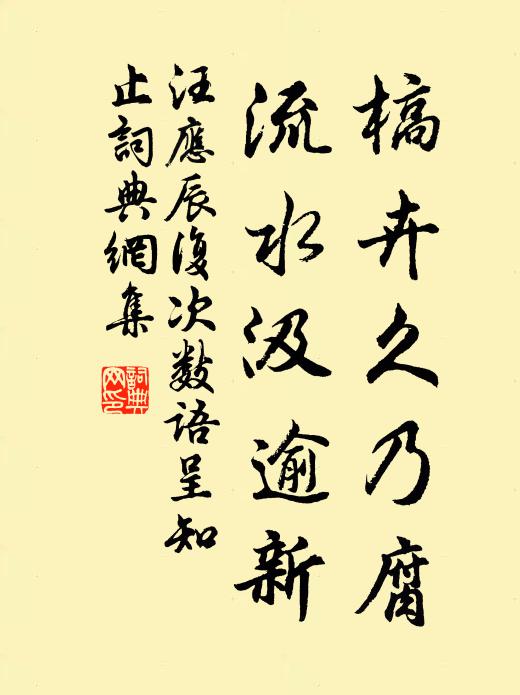 槁卉久乃腐
流水汲逾新
汪應辰復次數語呈知
止詞典網集
詞典
网印